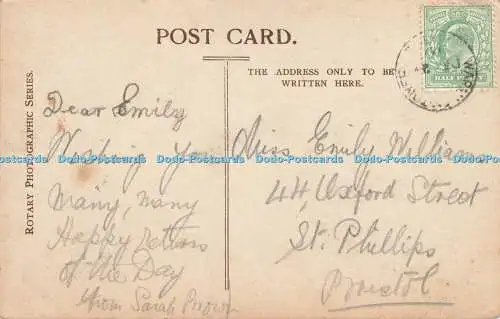 POST CARD.
ROTARY PHOTOGRAPHIC SERIES.
THE ADDRESS ONLY TO BE
WRITTEN HERE.
HALF PENNY
Dear Emily
Wishing you
Many, many
Happy return
of the Day
from Sarah Brown
Miss Emily Williams
44, Oxford Street
St. Phillips
Bristol.
Dodo-Postcards Dodo-Postcards Dodo-Postcards Dodo-Postcards Dodo-Postcards